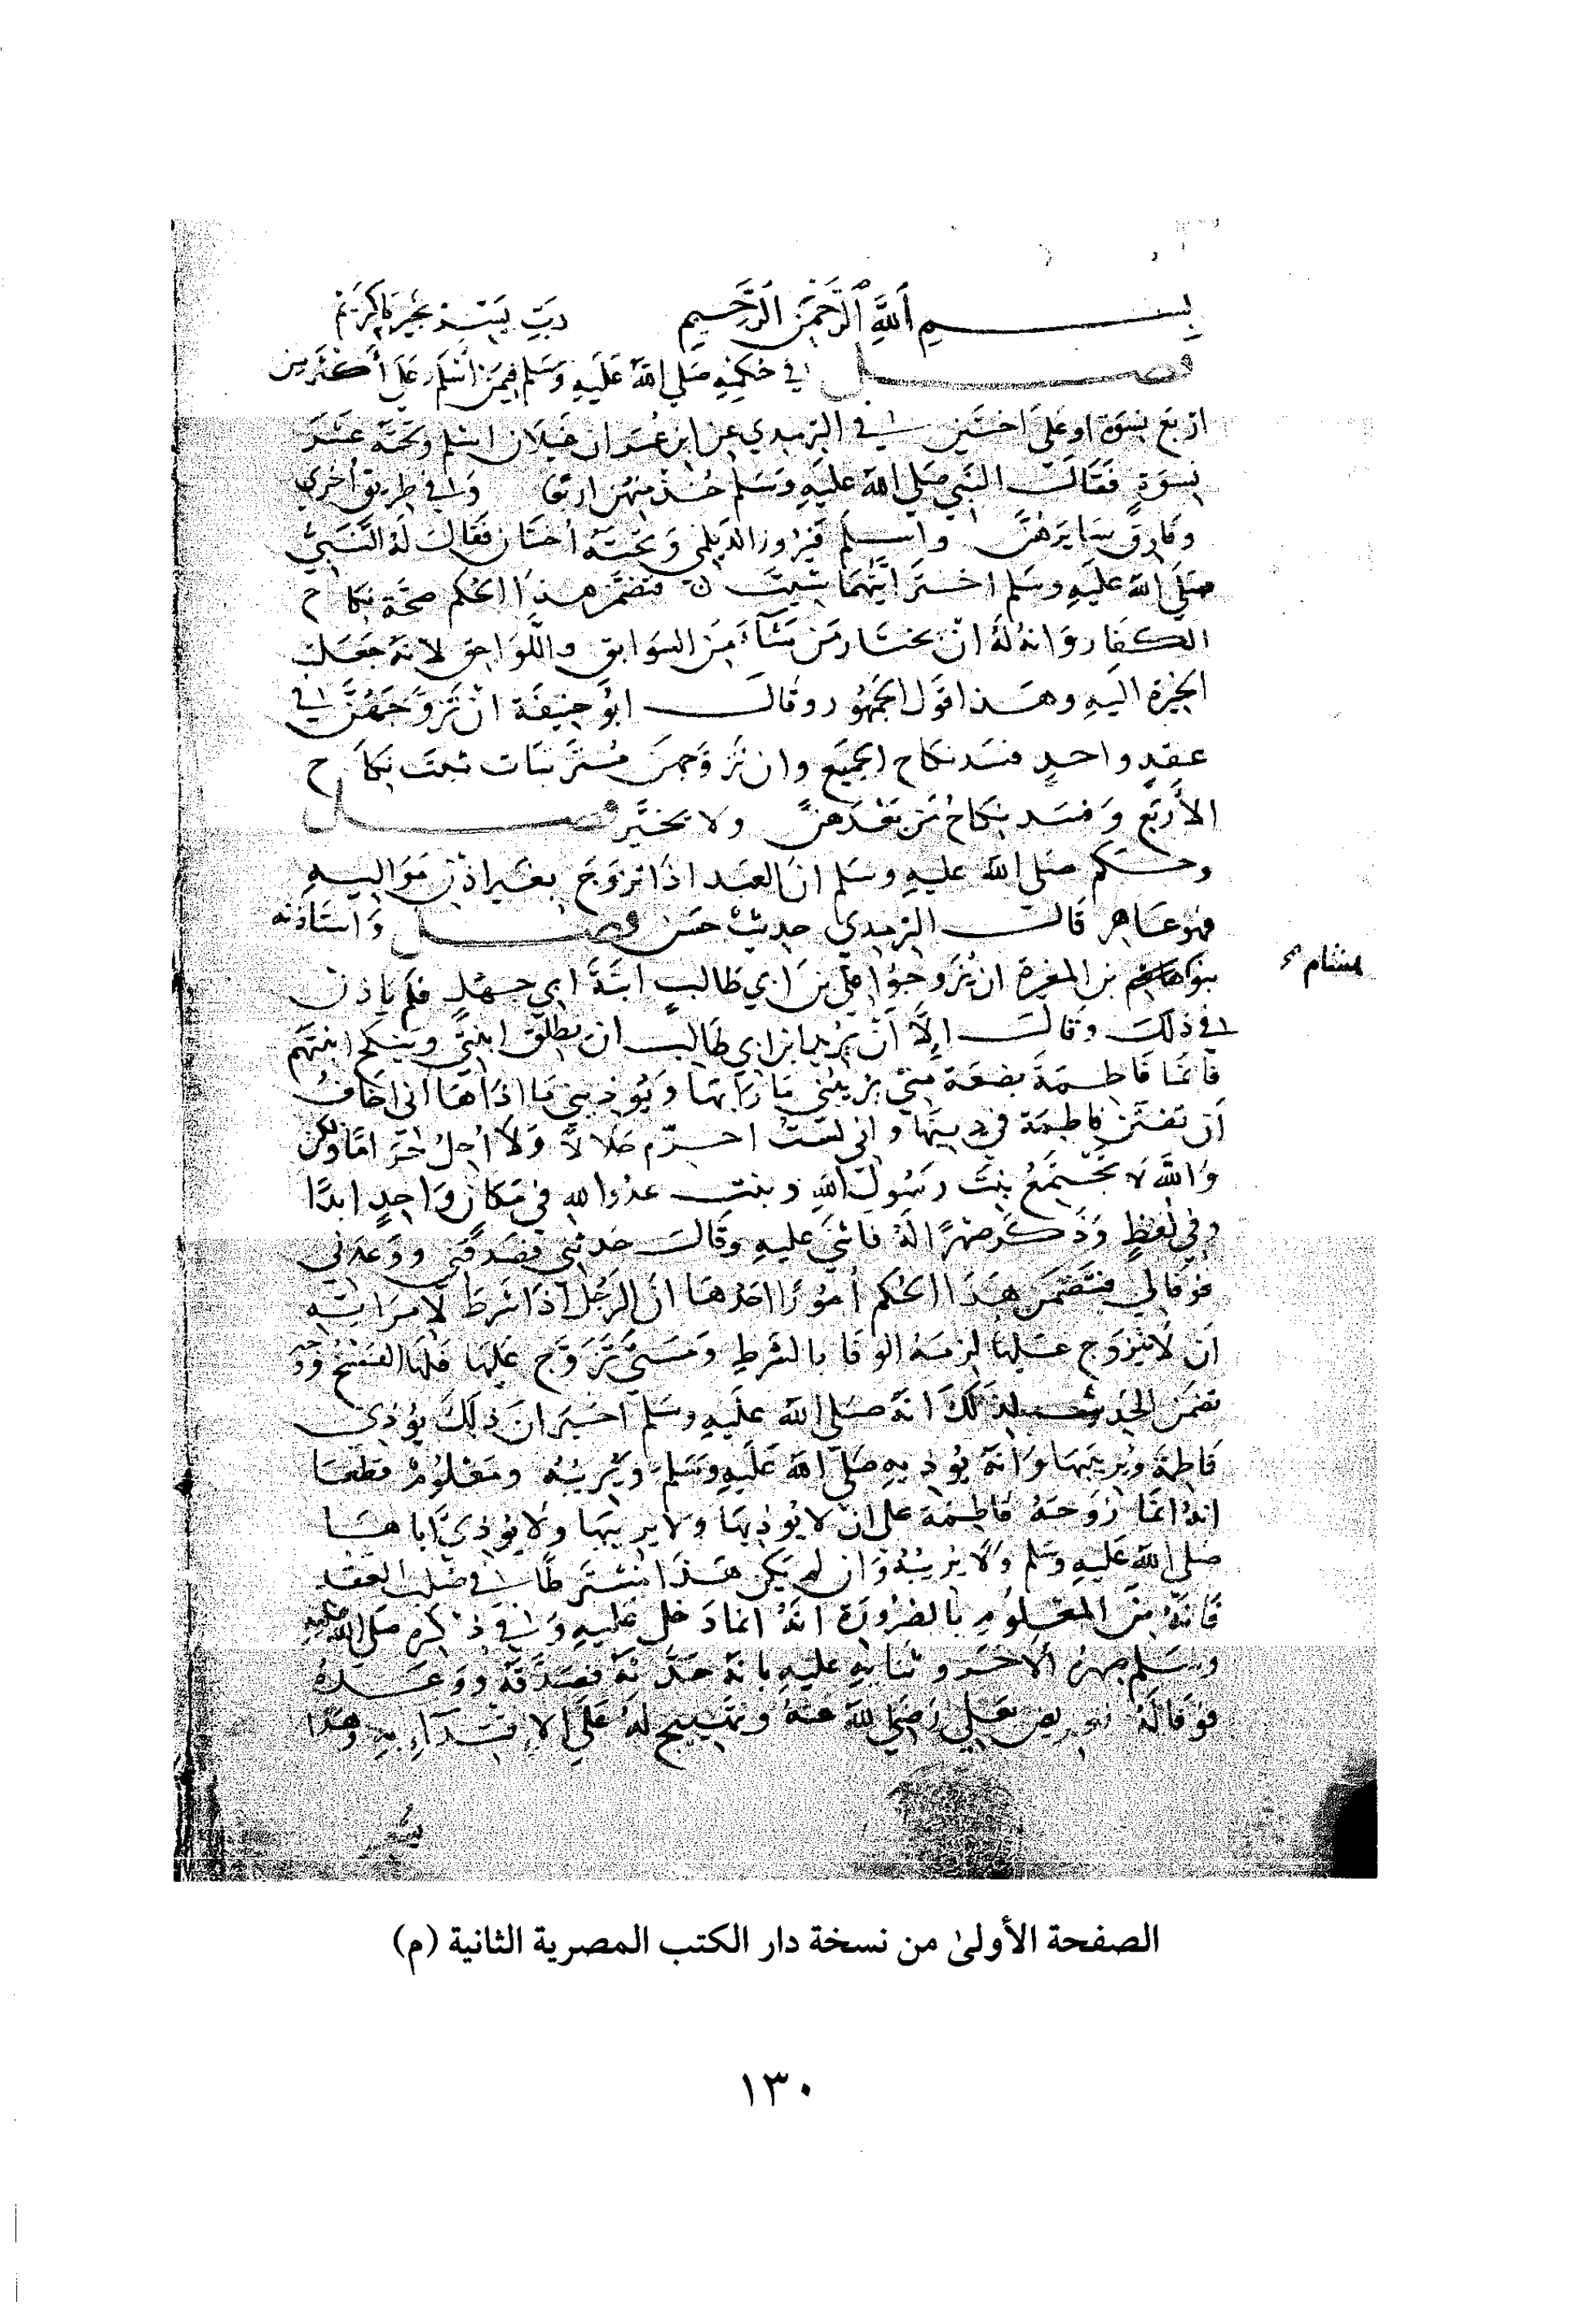 بسم الله الرحمن الرحيم رب يسر بخير يا كريم
فصل في حكمه صلى الله عليه وسلم فيمن اسلم على أكثر من
اربع نسوة او على اختين في الترمذي عن ابن عمر ان غيلان اسلم وتحته عشر
نسوة فقال النبي صلى الله عليه وسلم خذ منهن اربعا وفي طريق أخرى
وفارق سايرهن واسلم فيروز الديلمي وتحته أختان فقال له النبي
صلى الله عليه وسلم اختر ايتهما شيت فتضمن هذا الحكم صحة نكاح
الكفار وانه له ان يختار من شآء من السوابق واللواحق لانه جعل
الخيرة اليه وهذا قول الجمهور وقال ابو حنيفة ان تزوجهن في
عقد واحد فسد نكاح الجميع وان تزوجهن مترتبات ثبت نكاح
الأربع وفسد نكاح من بعدهن ولا يخير فصل
وحكم صلى الله عليه وسلم ان العبد اذا تزوج بغير اذن مواليه
فهو عاهر قال الترمذي حديث حسن فصل واستاذنه
بنو هاشم بن المغيرة ان يزوجوا علي بن ابي طالب ابنة ابي جهل فلم ياذن
هشام
في ذلك وقال الا ان يريد ابن ابي طالب ان يطلق ابنتي وينكح ابنتهم
فانما فاطمة بضعة مني يريبني ما رابها ويوذيني ما اذاها اني اخاف
أن تفتن فاطمة في دينها واني لست احرم حلالا ولا أحل حراما ولكن
والله لا تجتمع بنت رسول الله وبنت عدو الله في مكان واحد ابدا
وفي لفظ وذكر صهرا له فاثنى عليه وقال حدثني فصدقني ووعدني
فوفا لي فتضمن هذا الحكم أمورا احدها ان الرجل اذا شرط لامراته
ان لا يتزوج عليها لزمه الوفا بالشرط ومتى تزوج عليها فلها الفسخ ووجه
تضمن الحديث لذلك انه صلى الله عليه وسلم اخبر ان ذلك يوذي
فاطمة ويريبها وانه يوذيه صلى الله عليه وسلم ويريبه ومعلوم قطعا
انه انما زوجه فاطمة على ان لا يوذيها ولا يريبها ولا يوذي اباها
صلى الله عليه وسلم ولا يريبه وان لم يكن هذا مشترطا في صلب العقد
فانه من المعلوم بالضرورة انه انما دخل عليه وفي ذكره صلى الله عليه
وسلم صهره الاخر وثنايه عليه بانه حدثه فصدقه ووعده
فوفا له تعريض بعلي رضي الله عنه وتهييج له على الاقتدآء به وهذا
الصفحة الأولىٰ من نسخة دار الكتب المصرية الثانية (م)
١٣٠